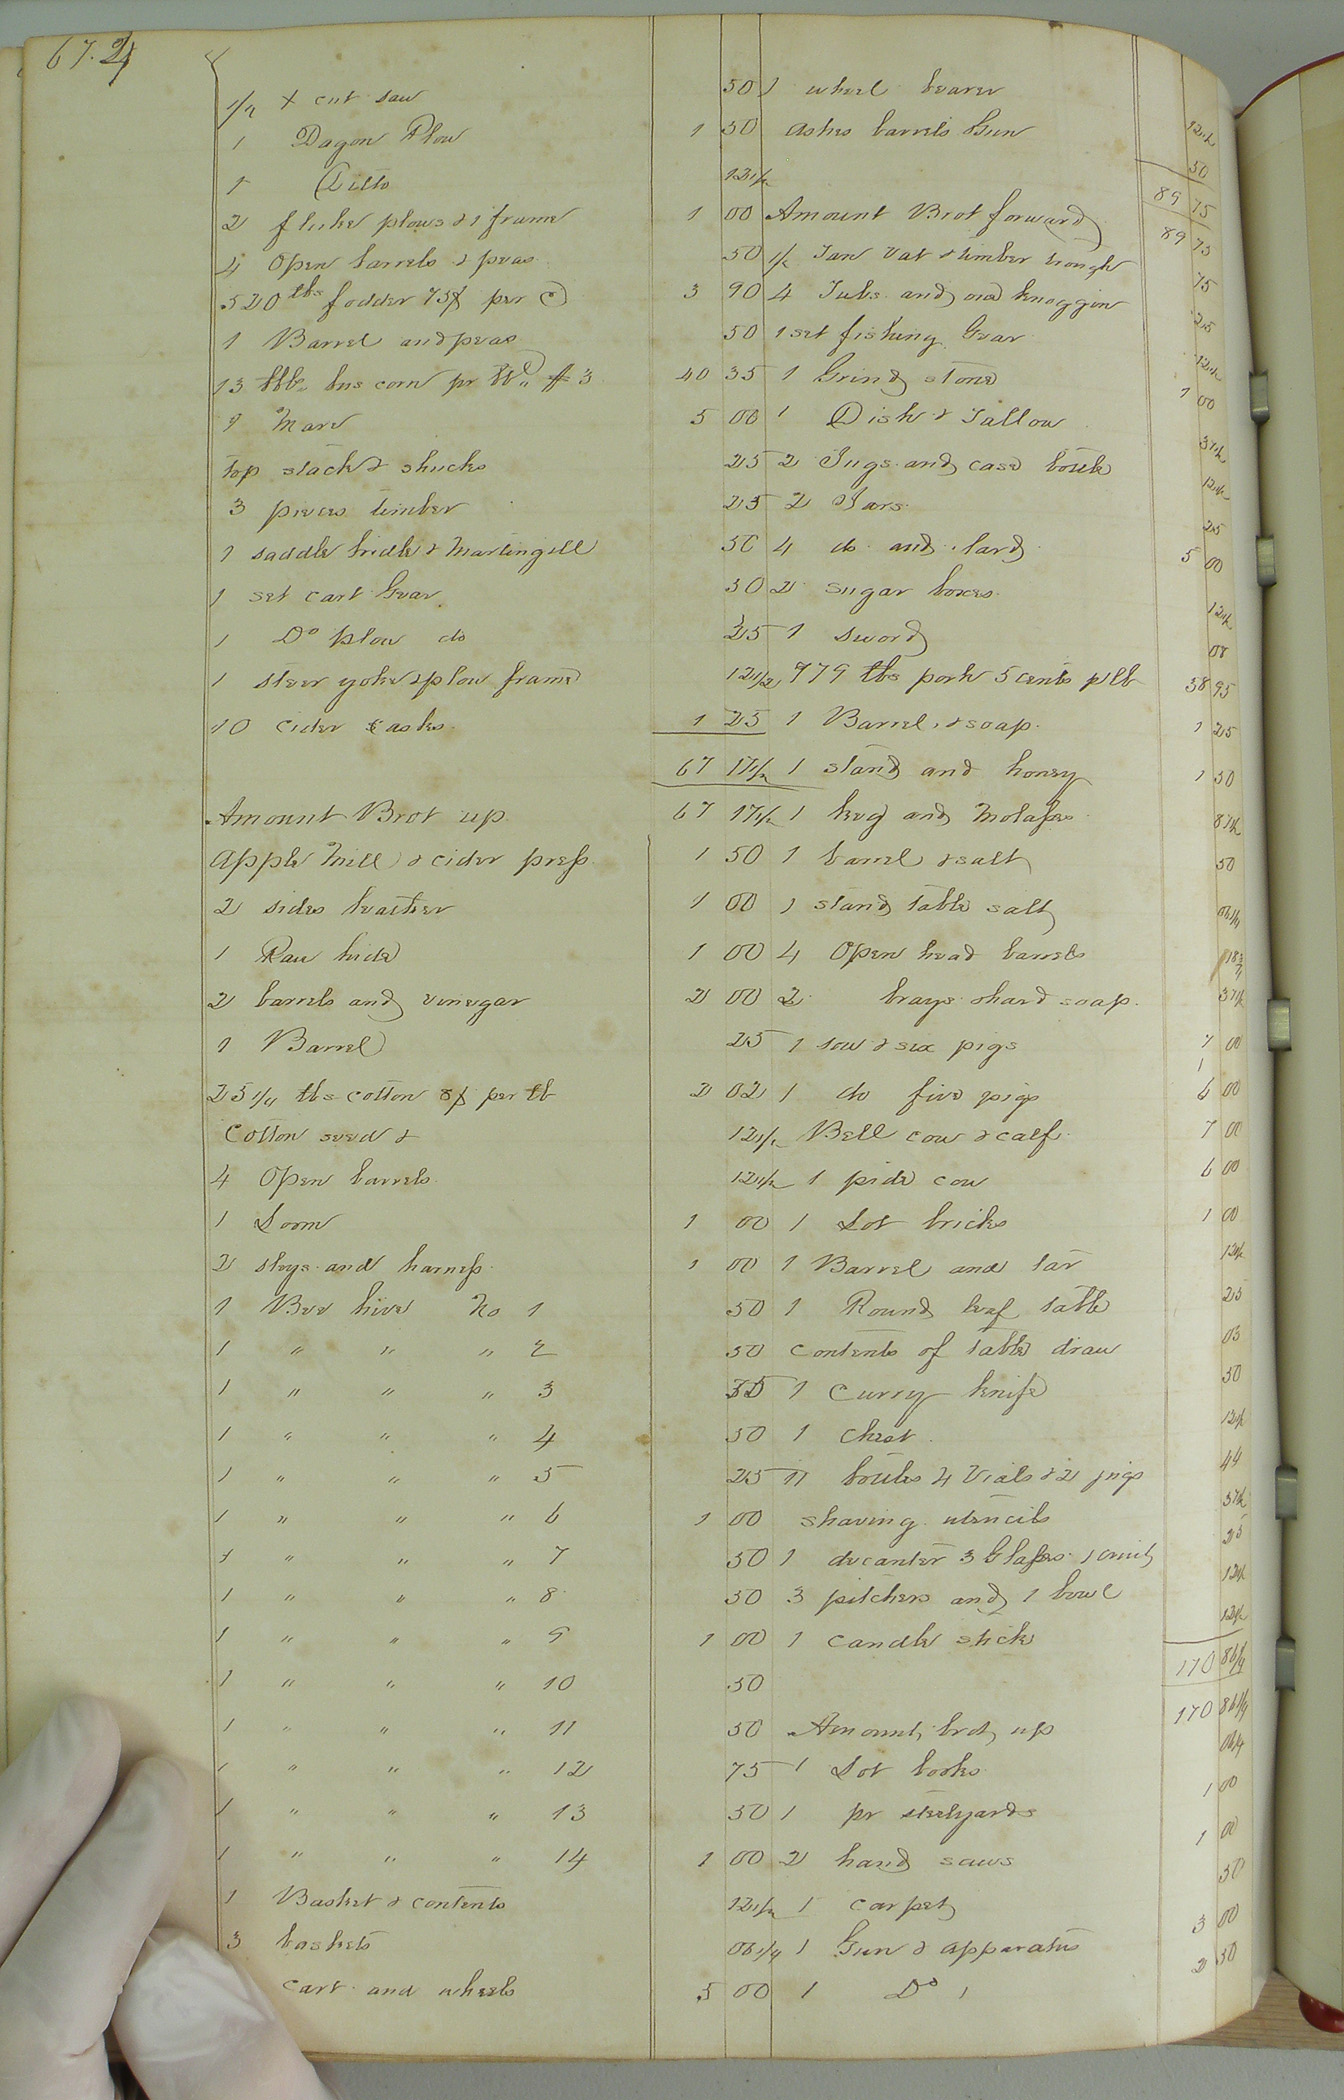 67.24
1/2 X cut saw 50
1 Dagon Plow 1 50
1 Ditto 12 1/2
2 fluke plows & 1 frame 1 00
4 Open barrels & peas 50
520 lbs fodder 75¢ per C 3 90
1 Barrel and peas 50
13 bbls corn pr 40 35
1 Mare 5 00
top stack & shucks 25
3 pieces timber 25
1 saddle bridle & Martingill 50
1 set cart Gear 50
1 Do plow do 25
1 steer yoke & plow frame 12 1/2
10 cider casks 1 25
67 17 1/2
Amount Brot up 67 17 1/2
Apple Mill & cider press 1 50
2 sides leather 1 00
1 Raw hide 1 00
2 barrels and vinegar 2 00
1 Barrel 25
25 1/4 lbs cotton 8¢ per lb 2 02
Cotton seed & 12 1/2
4 Open barrels 12 1/2
1 Loom 1 00
2 sleys and harness 1 00
1 Bee hive No 1 50
1 " " " 2 50
1 " " " 3
1 " " " 4 50
1 " " " 5 25
1 " " " 6 1 00
1 " " " 7 50
1 " " " 8 50
1 " " " 9 1 00
1 " " " 10 50
1 " " " 11 50
1 " " " 12 75
1 " " " 13 50
1 " " " 14 1 00
1 Basket & contents 12 1/2
3 baskets 06 1/4
cart and wheels 5 00
1 wheel bearer 12 1/2
Ashes barrels Gum 50
89 75
Amount Brot forward 89 75
1/2 Tan vat & timber trough 75
4 Tubs and one knoggin 25
1 set fishing Gear 12 1/2
1 Grind stone 1 00
1 Dish & Tallow 37 1/2
2 Jugs and case bottle 12 1/2
2 Jars 25
4 do and lard 5 00
2 sugar boxes 12 1/2
1 sword
779 lbs pork 5 cents p lb 38 95
1 Barrel & soap 1 25
1 stand and honey 1 50
1 keg and Molasses 87 1/2
1 barrel & salt 50
1 stand table salt 06 1/4
4 Open head barrels 18 3/4
2 trays & hard soap 37 1/2
1 sow & six pigs 7 00
1 do five pigs 6 00
Bell cow & calf 7 00
1 pide cow 6 00
1 Lot bricks 1 00
1 Barrel and tar 12 1/2
1 Round leaf table 25
contents of table draw 05
1 Curry knife 50
1 Chest 12 1/2
11 bottles 4 Vials & 2 jugs 44
shaving utencils 37 1/2
1 decanter 3 Glasses 1 cruit 25
3 pitchers and 1 bowl 12 1/2
1 candle stick 12 1/2
170 86 1/4
Amount brot up 170 86 1/4
1 Lot books
1 pr steelyards 1 00
2 hand saws 1 00
1 carpet 50
1 Gun & apparatus 3 00
1 Do 1 2 50